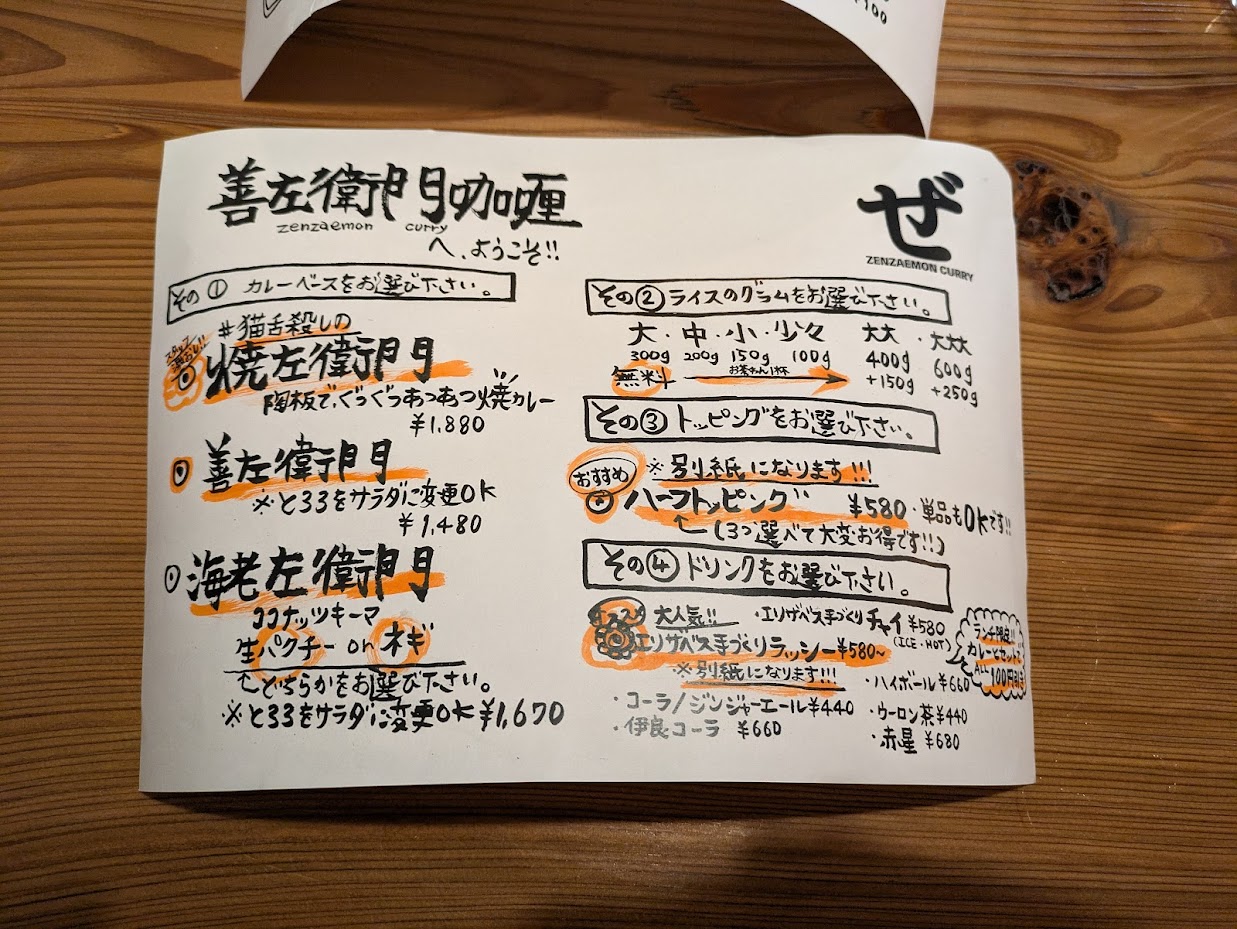 100
善左衛門咖喱
zenzaemon curry
へ、ようこそ!!
ぜ
ZENZAEMON CURRY
その① カレーベースをお選び下さい。
#猫舌殺しの
スタッフ
焼左衛門
陶板で、ぐつぐつあつあつ焼カレー
¥1,880
善左衛門
※とろろをサラダに変更OK
¥1,480
海老左衛門
ココナッツキーマ
生パクチー or ネギ
どちらかをお選び下さい。
※とろろをサラダに変更OK ¥1,670
その② ライスのグラムをお選び下さい。
大・中・小・少々 大大・大大大
300g 200g 150g 100g 400g 600g
無料 お茶わん1杯 +150g +250g
その③ トッピングをお選び下さい。
おすすめ ※別紙になります!!!
ハーフトッピング ¥580・単品もOKです!!
(3つ選べて大変お得です!!)
その④ ドリンクをお選び下さい。
オススメ 大人気!! ・エリザベス手づくりチャイ ¥580
(ICE・HOT)
エリザベス手づくりラッシー ¥580~
※別紙になります!!!
ランチ限定!!
カレーとセットで
ALL 100円引き
・ハイボール ¥660
・コーラ/ジンジャーエール ¥440
・ウーロン茶 ¥440
・伊良コーラ ¥660
・赤星 ¥680